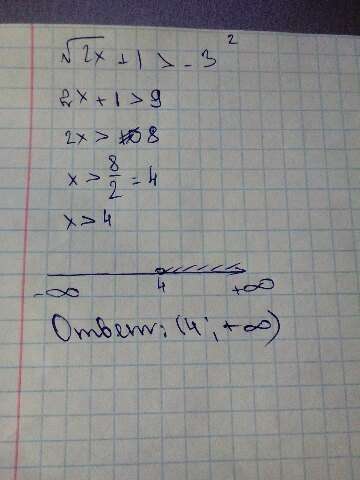 √2x + 1 > - 3 ²
2x + 1 > 9
2x > 8
x > 8/2 = 4
x > 4
-∞ 4 +∞
Ответ: (4; +∞)